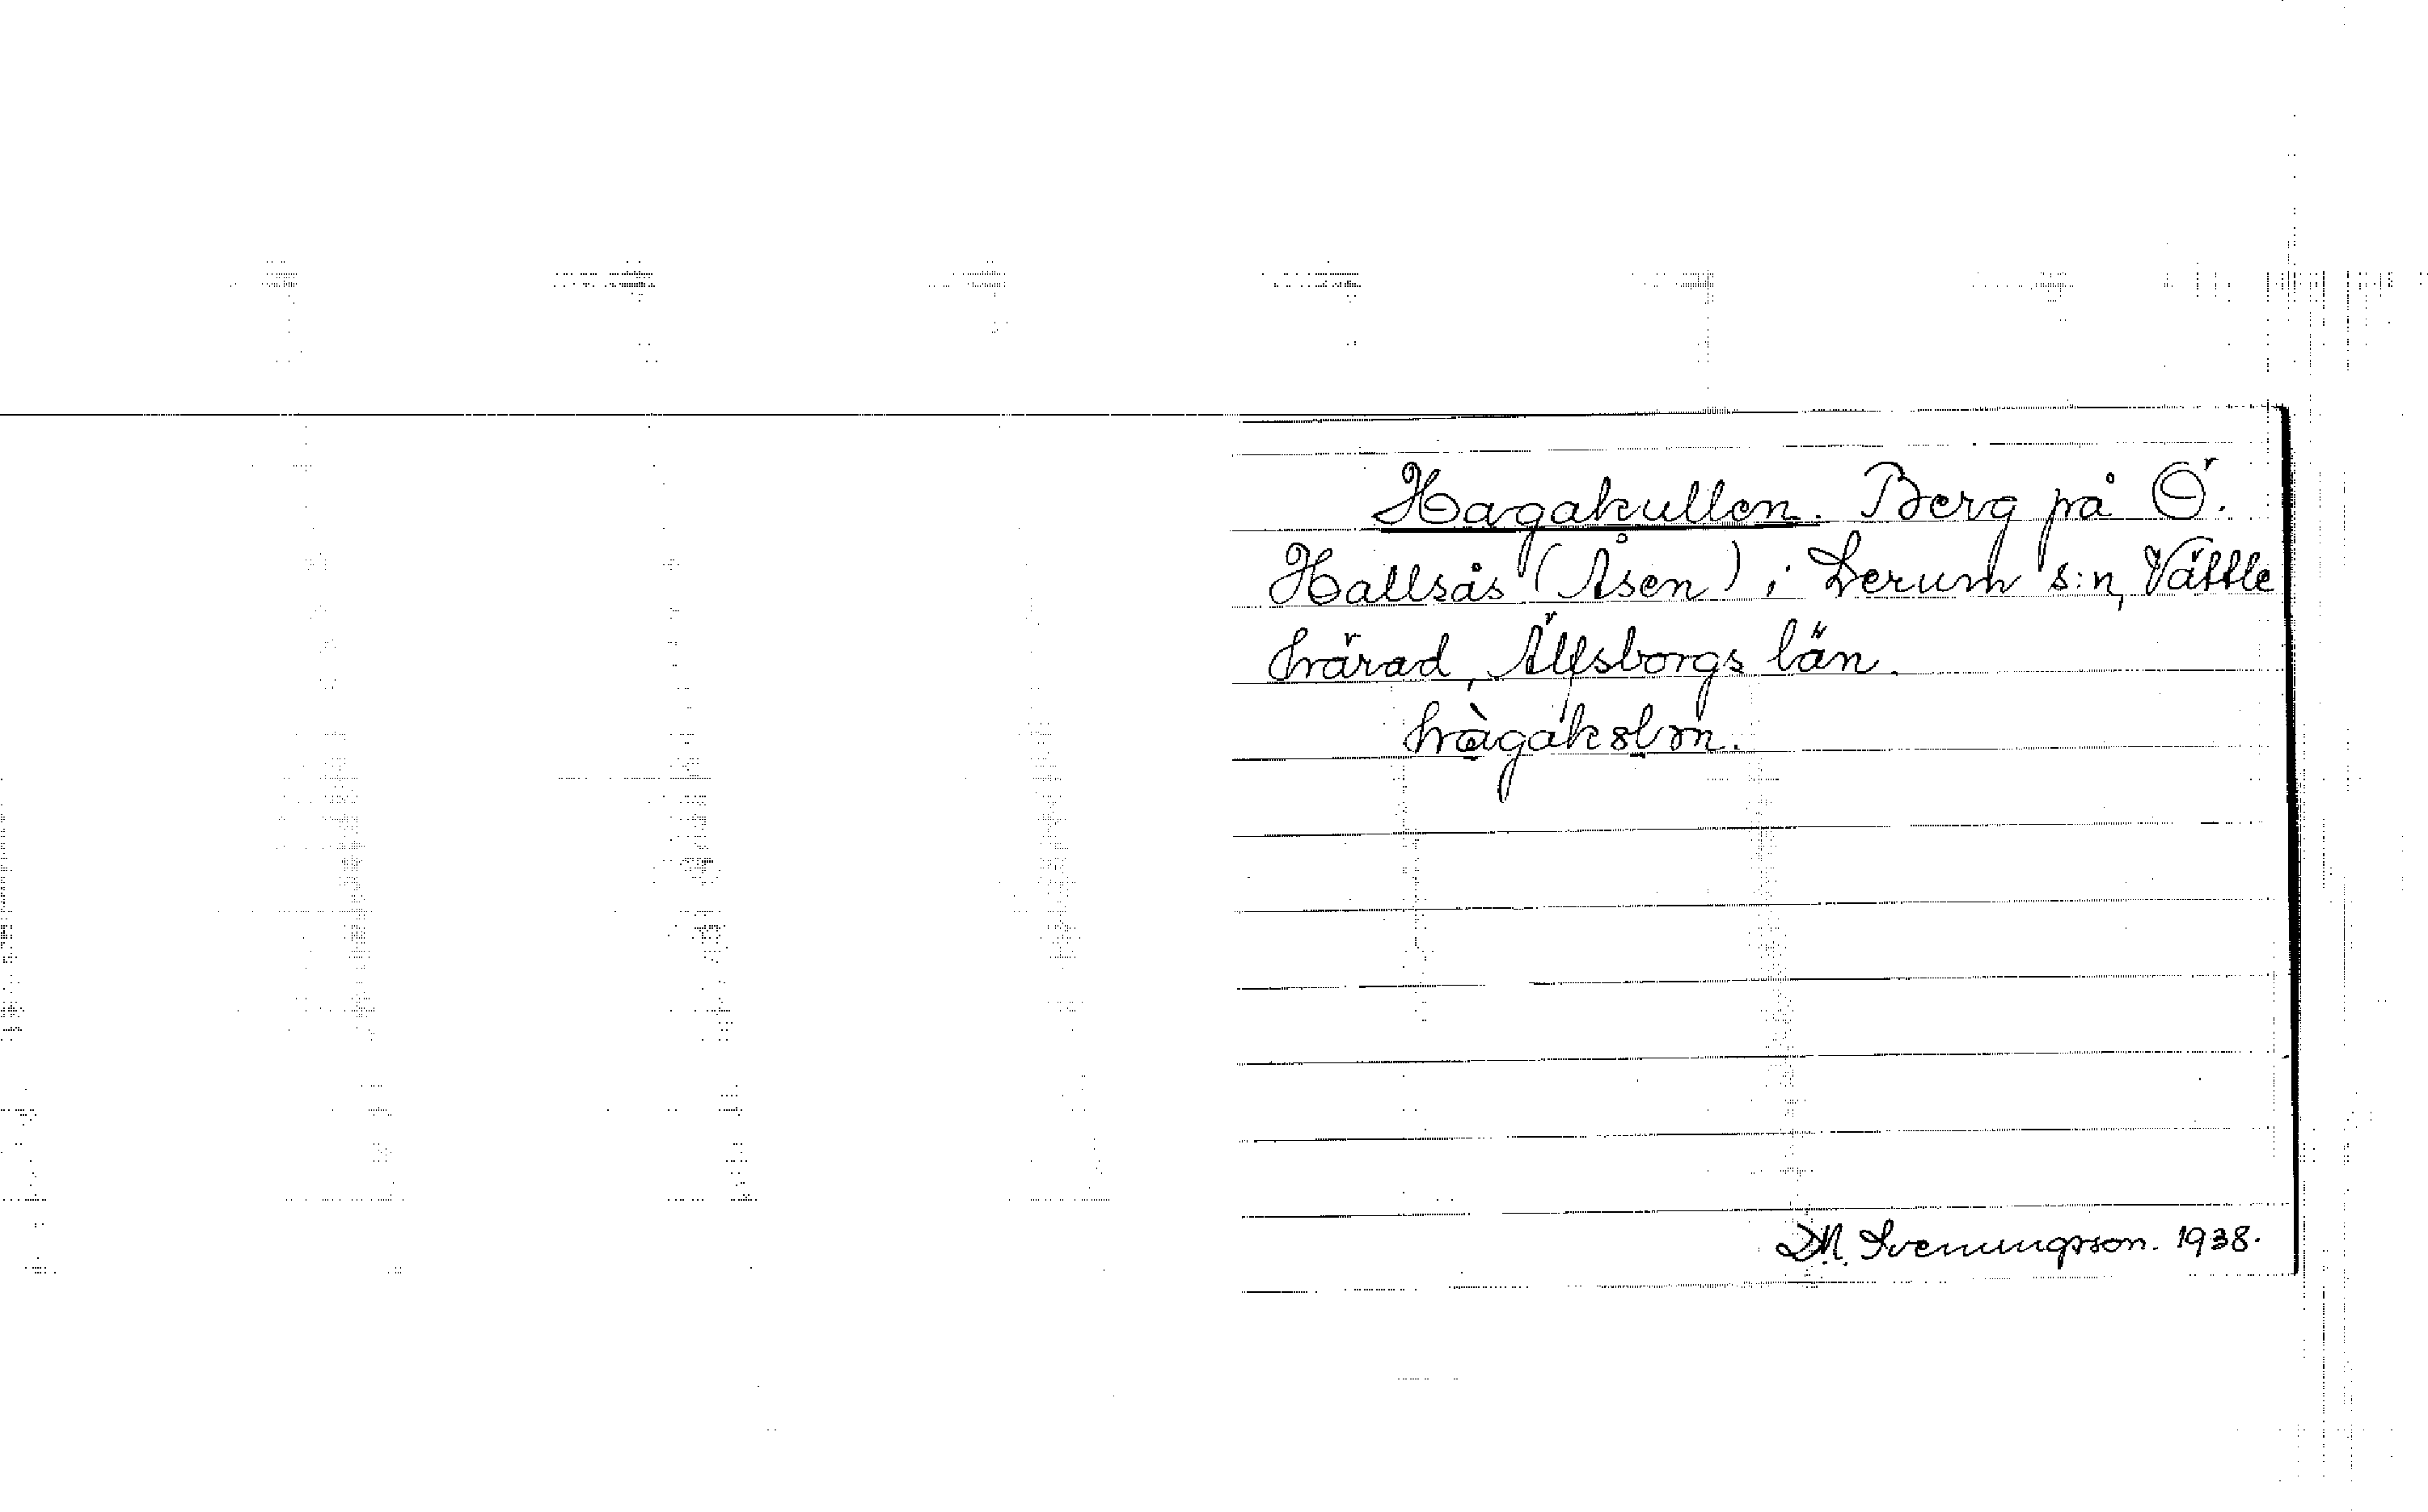 Hagakullen. Berg på Ö.
Hallsås (Åsen) i Lerum s:n, Vättle
härad, Älfsborgs län.
D.N. Svenungsson. 1938.